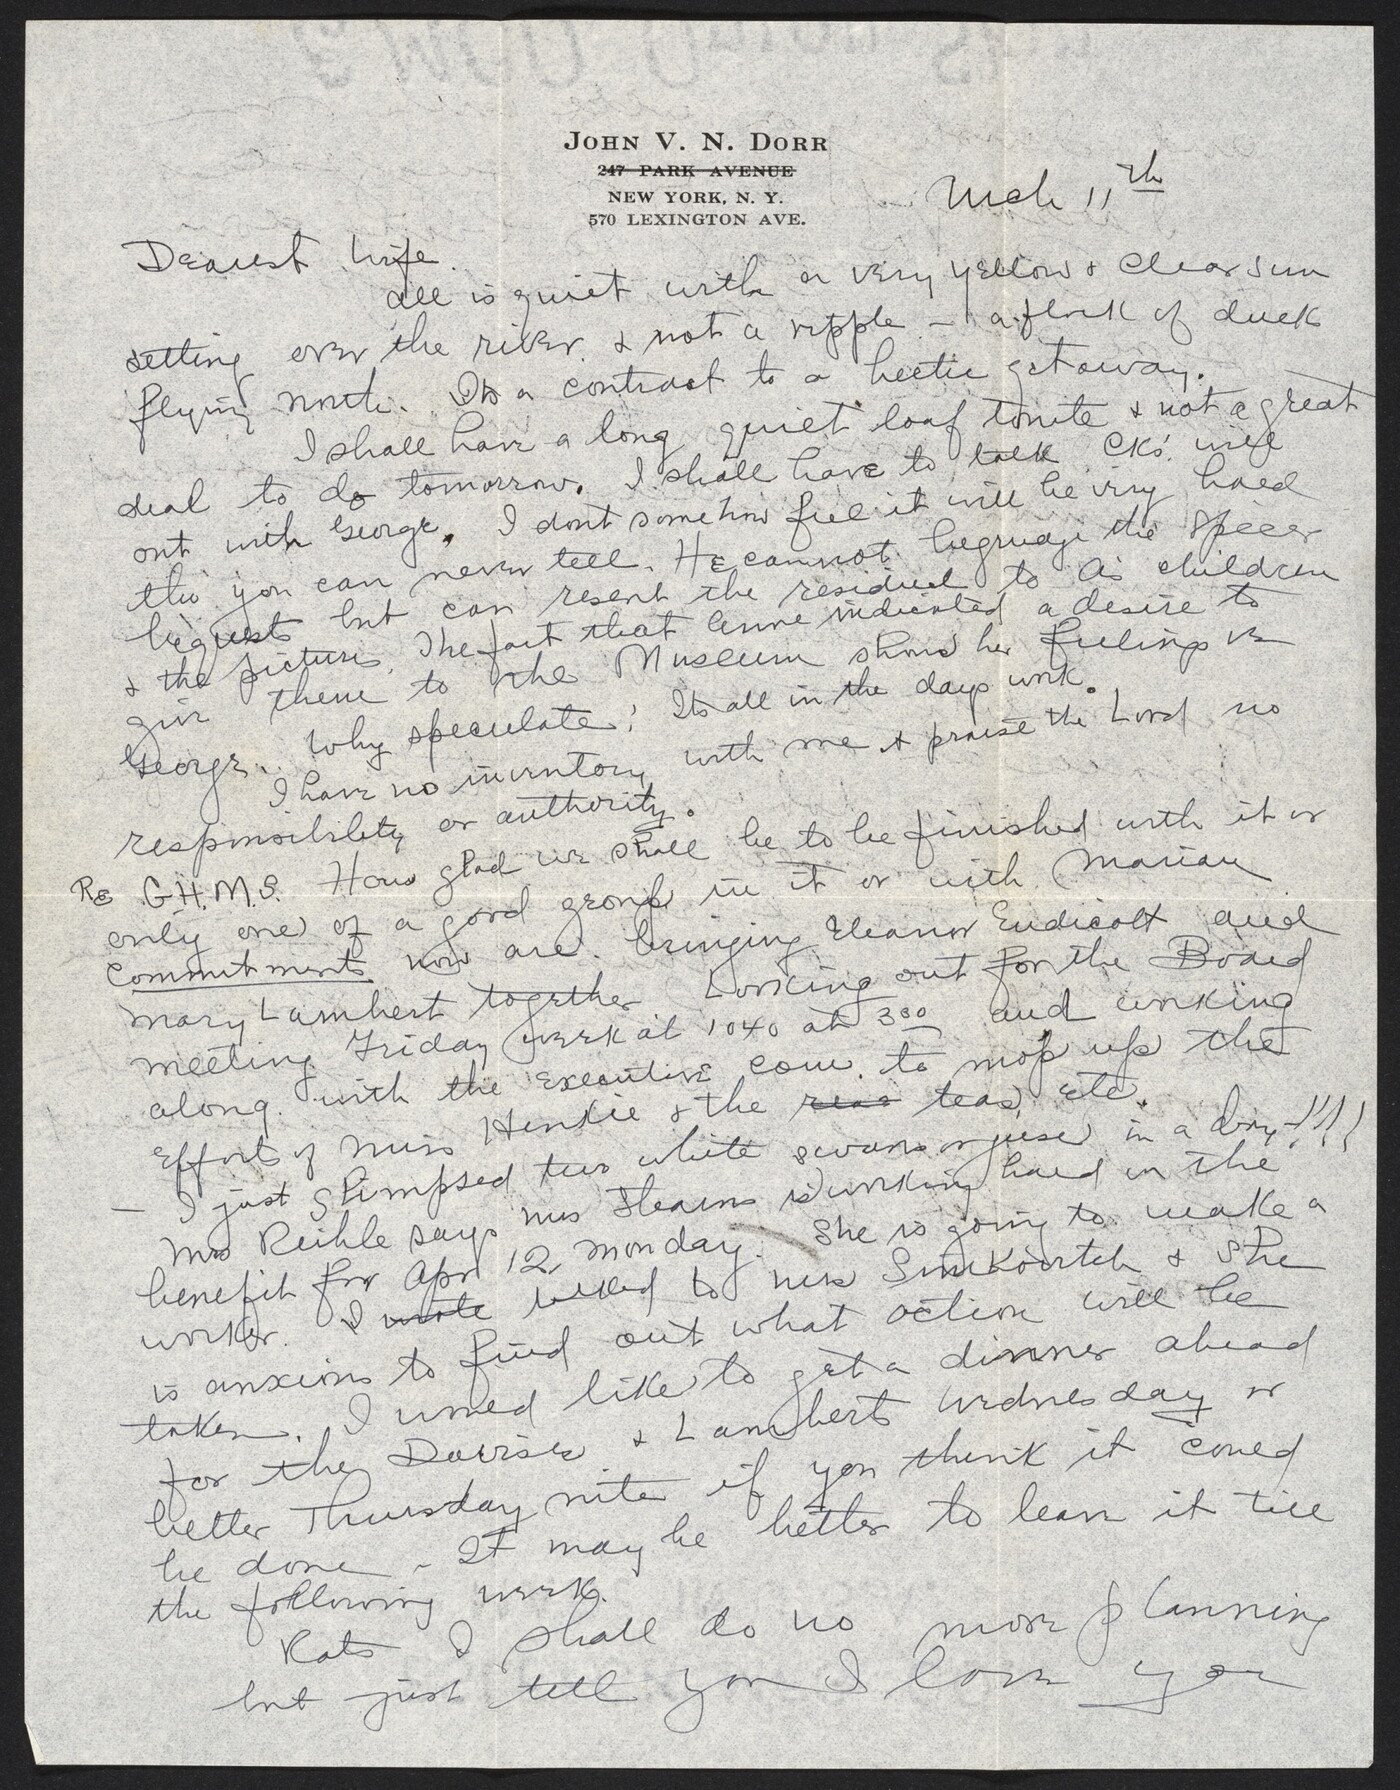 JOHN V. N. DORR
247 PARK AVENUE
NEW YORK, N. Y.
570 LEXINGTON AVE.
Mch 11th
Dearest Wife.
All is quiet with a very yellow & clear sun
setting over the river & not a ripple – a flock of duck
flying north. Its a contrast to a hectic getaway.
I shall have a long quiet loaf tonite & not a great
deal to do tomorrow. I shall have to talk CKs' will
out with George. I dont somehow feel it will be very hard
tho you can never tell. He cannot begrudge the
bequests but can resent the residual to As children
& the pictures. The fact that Anne indicated a desire to
give them to the Museum shows her feelings re
George. Why speculate! Its all in the days work.
I have no inventory with me & praise the Lord no
responsibility or authority.
Re G.H.M.S. How glad we shall be to be finished with it or
only one of a good group in it or with Marian
Commitments now are. bringing Eleanor Endicott and
Mary Lambert together Looking out for the Board
meeting Friday week at 1040 at 3 30 and working
along with the Executive Com. to mop up the
efforts of Miss Henkle & the teas, etc.
– I just glimpsed two white swans or geese in a dory!!!!
Mrs Reihle says Mrs Stearns is working hard on the
benefit for Apr 12, Monday. She is going to make a
worker. I wrote talked to Mrs Simkovitch & she
is anxious to find out what action will be
taken. I woued like to get a dinner ahead
for the Davises & Lamberts Wednesday or
better Thursday nite if you think it coued
be done – It may be better to leave it till
the following week.
Rats I shall do no more planning
but just tell you I love you